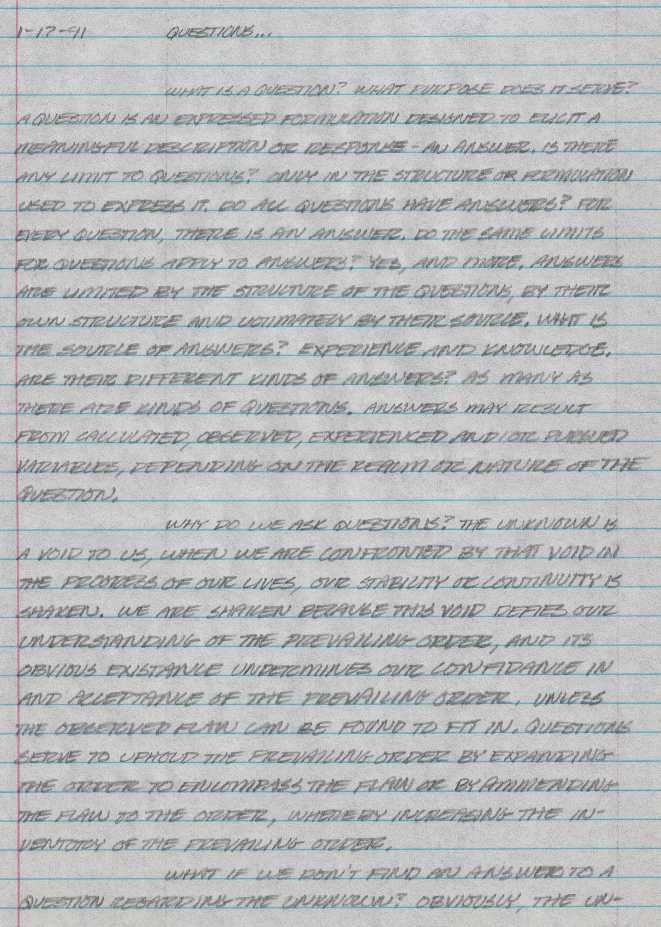 1-17-91 QUESTIONS...
WHAT IS A QUESTION? WHAT PURPOSE DOES IT SERVE?
A QUESTION IS AN EXPRESSED FORMULATION DESIGNED TO ELICIT A
MEANINGFUL DESCRIPTION OR RESPONSE - AN ANSWER. IS THERE
ANY LIMIT TO QUESTIONS? ONLY IN THE STRUCTURE OR FORMULATION
USED TO EXPRESS IT. DO ALL QUESTIONS HAVE ANSWERS? FOR
EVERY QUESTION, THERE IS AN ANSWER. DO THE SAME LIMITS
FOR QUESTIONS APPLY TO ANSWERS? YES, AND MORE. ANSWERS
ARE LIMITED BY THE STRUCTURE OF THE QUESTIONS, BY THEIR
OWN STRUCTURE AND ULTIMATELY BY THEIR SOURCE. WHAT IS
THE SOURCE OF ANSWERS? EXPERIENCE AND KNOWLEDGE.
ARE THEIR DIFFERENT KINDS OF ANSWERS? AS MANY AS
THERE ARE KINDS OF QUESTIONS. ANSWERS MAY RESULT
FROM CALCULATED, OBSERVED, EXPERIENCED AND/OR
VARIABLES, DEPENDING ON THE REALM OR NATURE OF THE
QUESTION.
WHY DO WE ASK QUESTIONS? THE UNKNOWN IS
A VOID TO US, WHEN WE ARE CONFRONTED BY THAT VOID IN
THE PROGRESS OF OUR LIVES, OUR STABILITY OR CONTINUITY IS
SHAKEN. WE ARE SHAKEN BECAUSE THIS VOID DEFIES OUR
UNDERSTANDING OF THE PREVAILING ORDER, AND ITS
OBVIOUS EXISTANCE UNDERMINES OUR CONFIDANCE IN
AND ACCEPTANCE OF THE PREVAILING ORDER, UNLESS
THE OBSERVED FLAW CAN BE FOUND TO FIT IN. QUESTIONS
SERVE TO UPHOLD THE PREVAILING ORDER BY EXPANDING
THE ORDER TO ENCOMPASS THE FLAW OR BY AMMENDING
THE FLAW TO THE ORDER, WHEREBY INCREASING THE IN-
VENTORY OF THE PREVAILING ORDER.
WHAT IF WE DON'T FIND AN ANSWER TO A
QUESTION REGARDING THE UNKNOWN? OBVIOUSLY, THE UN-